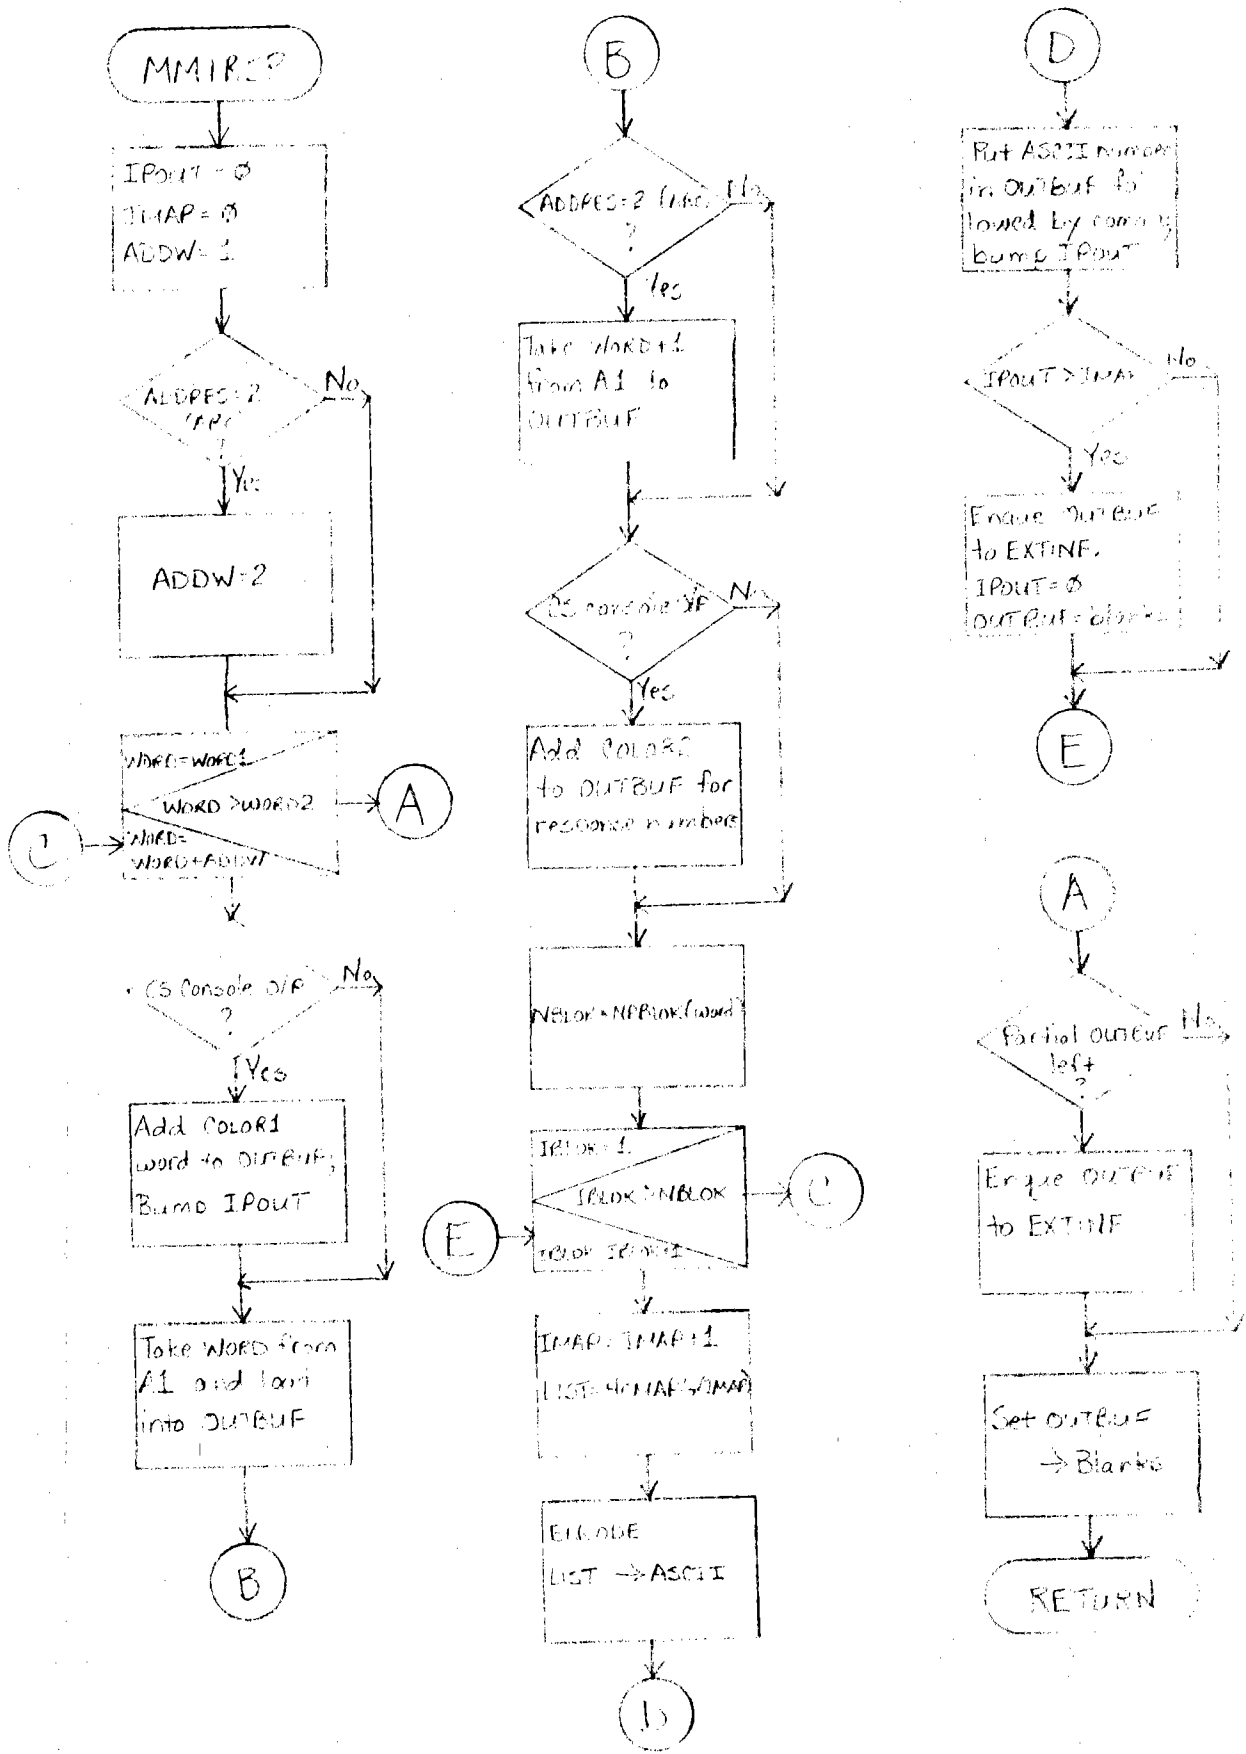 IPOUT = Ø
IMAP = Ø
ADDW = 1
ADDRES=2
?
No
Yes
ADDW=2
WORD=WORD1
WORD >WORD2
A
C
WORD=
WORD+ADDW
CS Console O/P
?
No
Yes
Add COLOR1
word to OUTBUF;
Bump IPOUT
Take WORD from
A1 and load
into OUTBUF
B
B
ADDRES=2
?
No
Yes
Take WORD+1
from A1 to
OUTBUF
CS console O/P
?
No
Yes
Add COLOR2
to OUTBUF for
response numbers
NBLOK = NPBLOK(word)
IBLOK=1
IBLOK >NBLOK
C
E
IBLOK=IBLOK+1
IMAP=IMAP+1
ENCODE
LIST → ASCII
D
D
Put ASCII number
in OUTBUF fol
lowed by comma
bump IPOUT
IPOUT >
No
Yes
Enque OUTBUF
to EXTINF.
IPOUT=Ø
OUTBUF=blanks
E
A
Partial OUTBUF
left
?
No
Enque OUTBUF
to EXTINF
Set OUTBUF
→ Blanks
RETURN